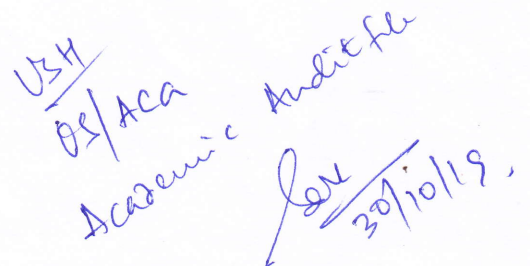 VSH
OS/ACA
Academic Audit file
30/10/19.